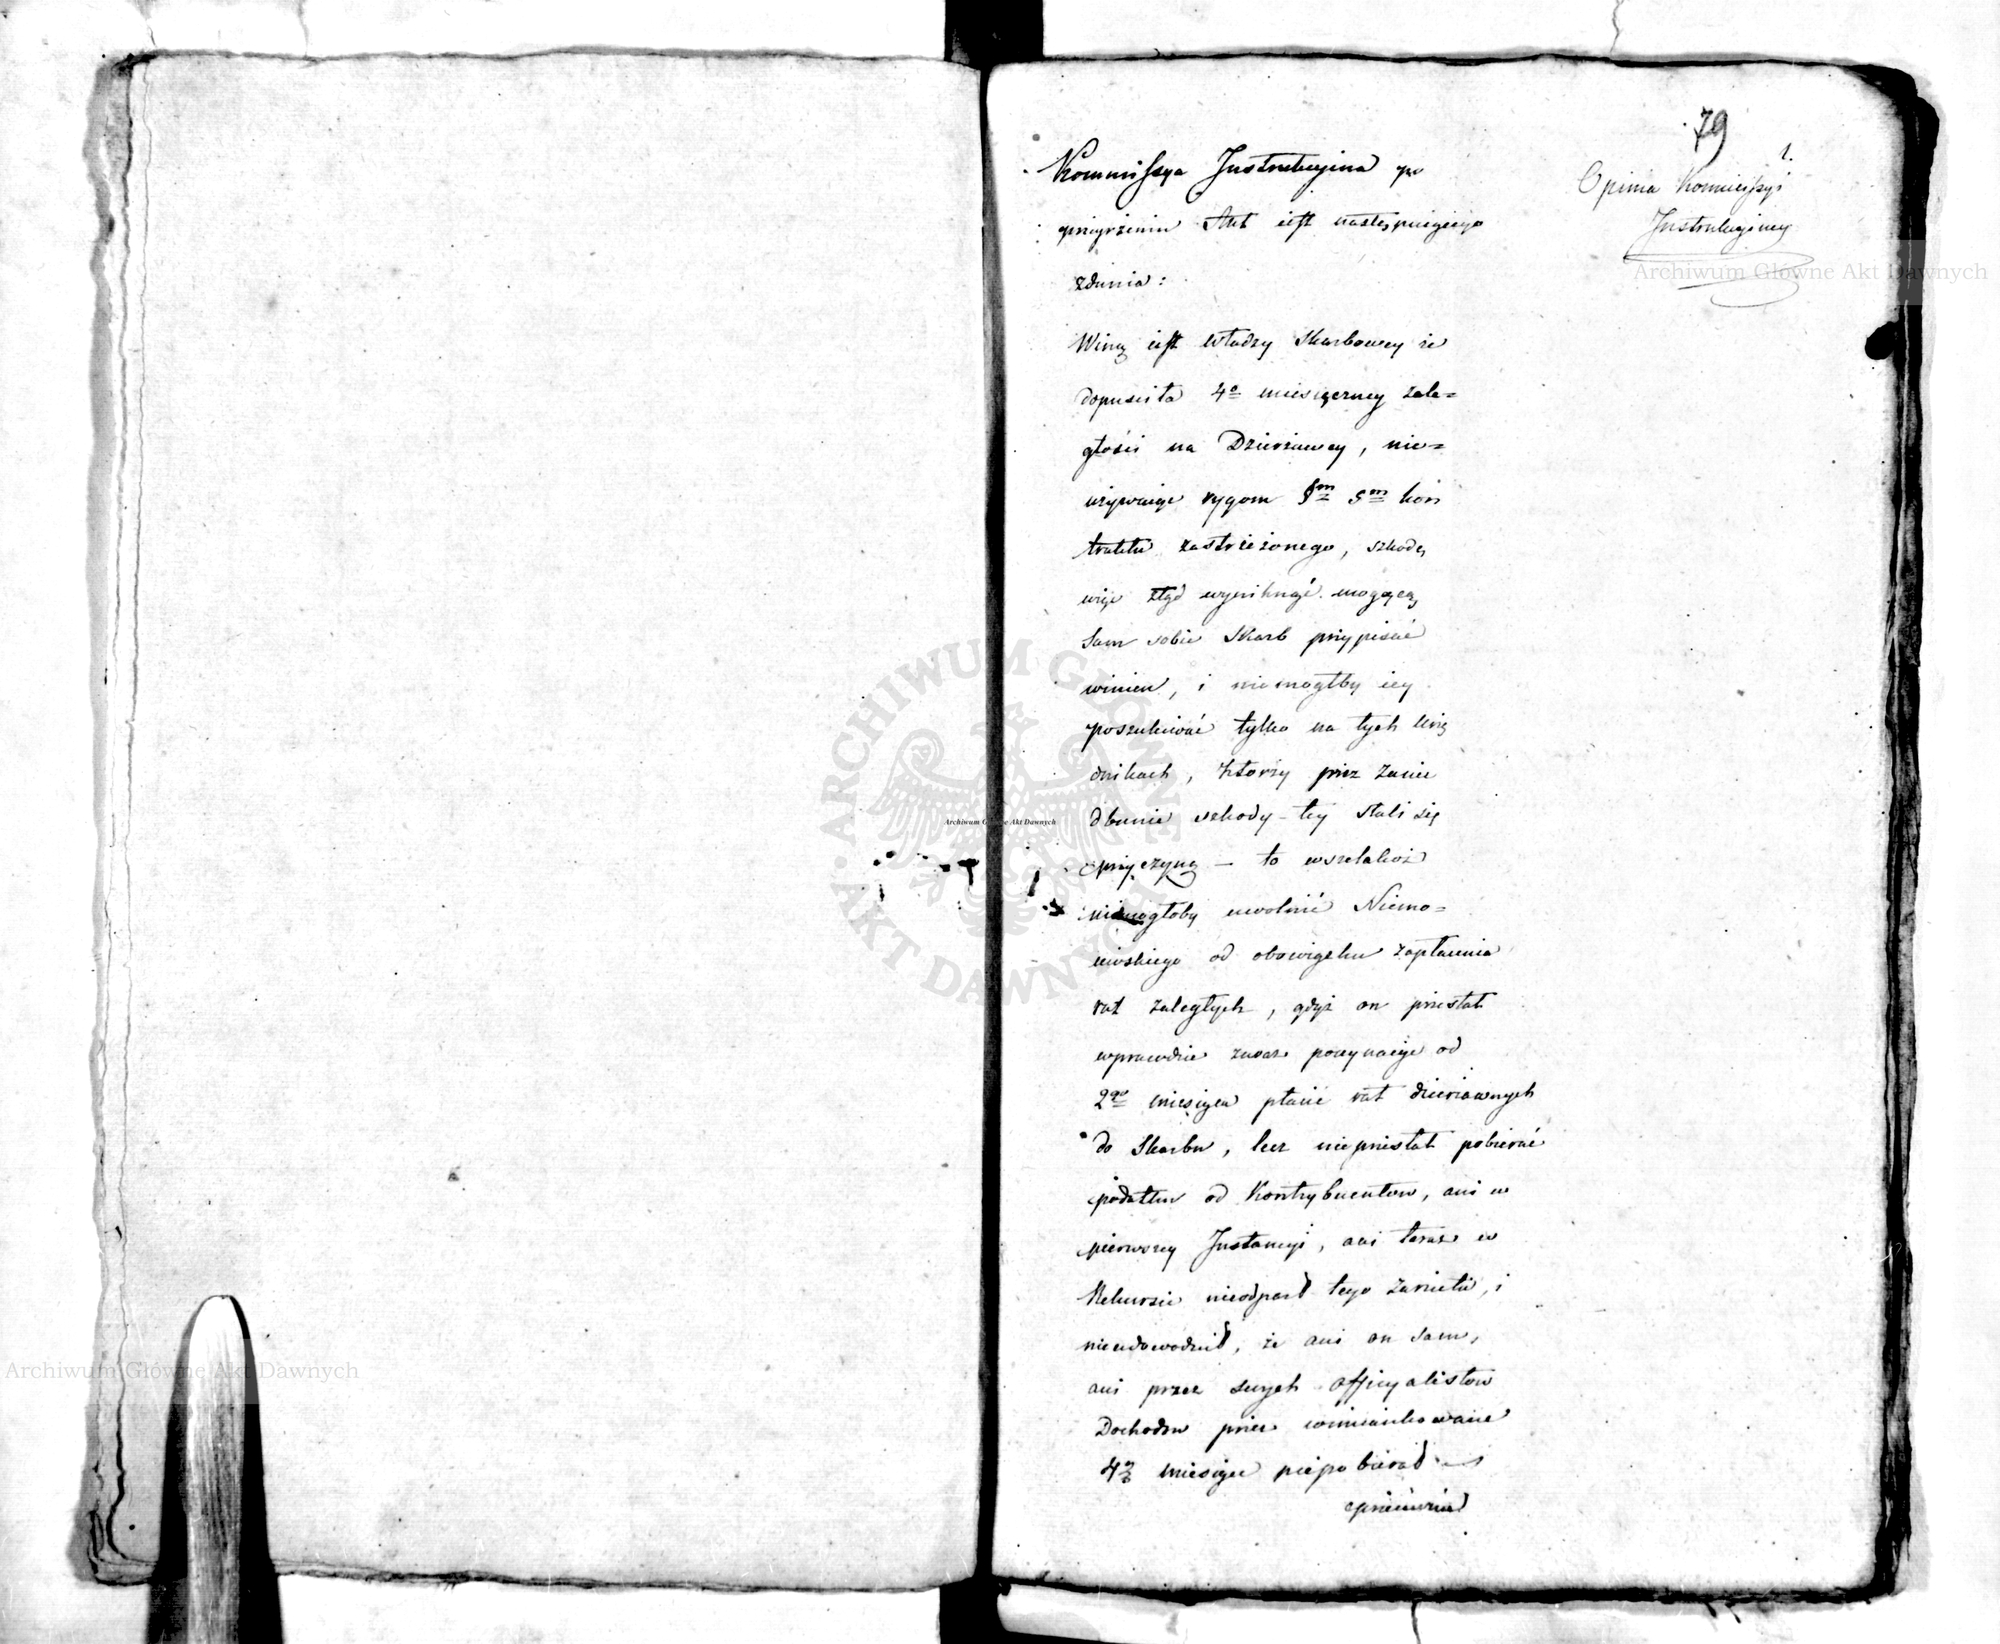 79
1.
Opinia Kommissyi
Instrukcyiney
Kommissya Instrukcyina po
przeyrzeniu Akt iest następuiącego
zdania:
Winą iest władzy Skarbowey że
dopuściła 4o miesięczney zale=
głości na Dzierżawcy, nie=
używaiąc rygoru §m 5m kon
traktu zastrzeżonego, szkodę
więc ztąd wyniknąć mogącą
Sam sobie Skarb przypisać
winien, i niemogłby iey
poszukiwać tylko na tych Urzę
dnikach, ktorzy przez zanie
dbanie szkody tey stali się
przyczyną – to wszelakoż
niemogłoby uwolnić Niemo=
iewskiego od obowiązku zapłacenia
rat zaległych, gdyż on przestał
wprawdzie zaraz począwszy od
2go miesiąca płacić rat dzierżawnych
do Skarbu, lecz nieprzestał pobierać
podatku od Kontrybuentow, ani w
pierwszey Instancyi, ani teraz w
Rekursie nieodparł tego zarzutu, i
nieudowodnił, że ani on sam,
ani przez swych officyalistow
Dochodow przez wzmiankowane
4ry miesiące niepobierał – i
przeciwnie
Archiwum Główne Akt Dawnych
Archiwum Główne Akt Dawnych
Archiwum Główne Akt Dawnych
ARCHIWUM GŁÓWNE AKT DAWNYCH